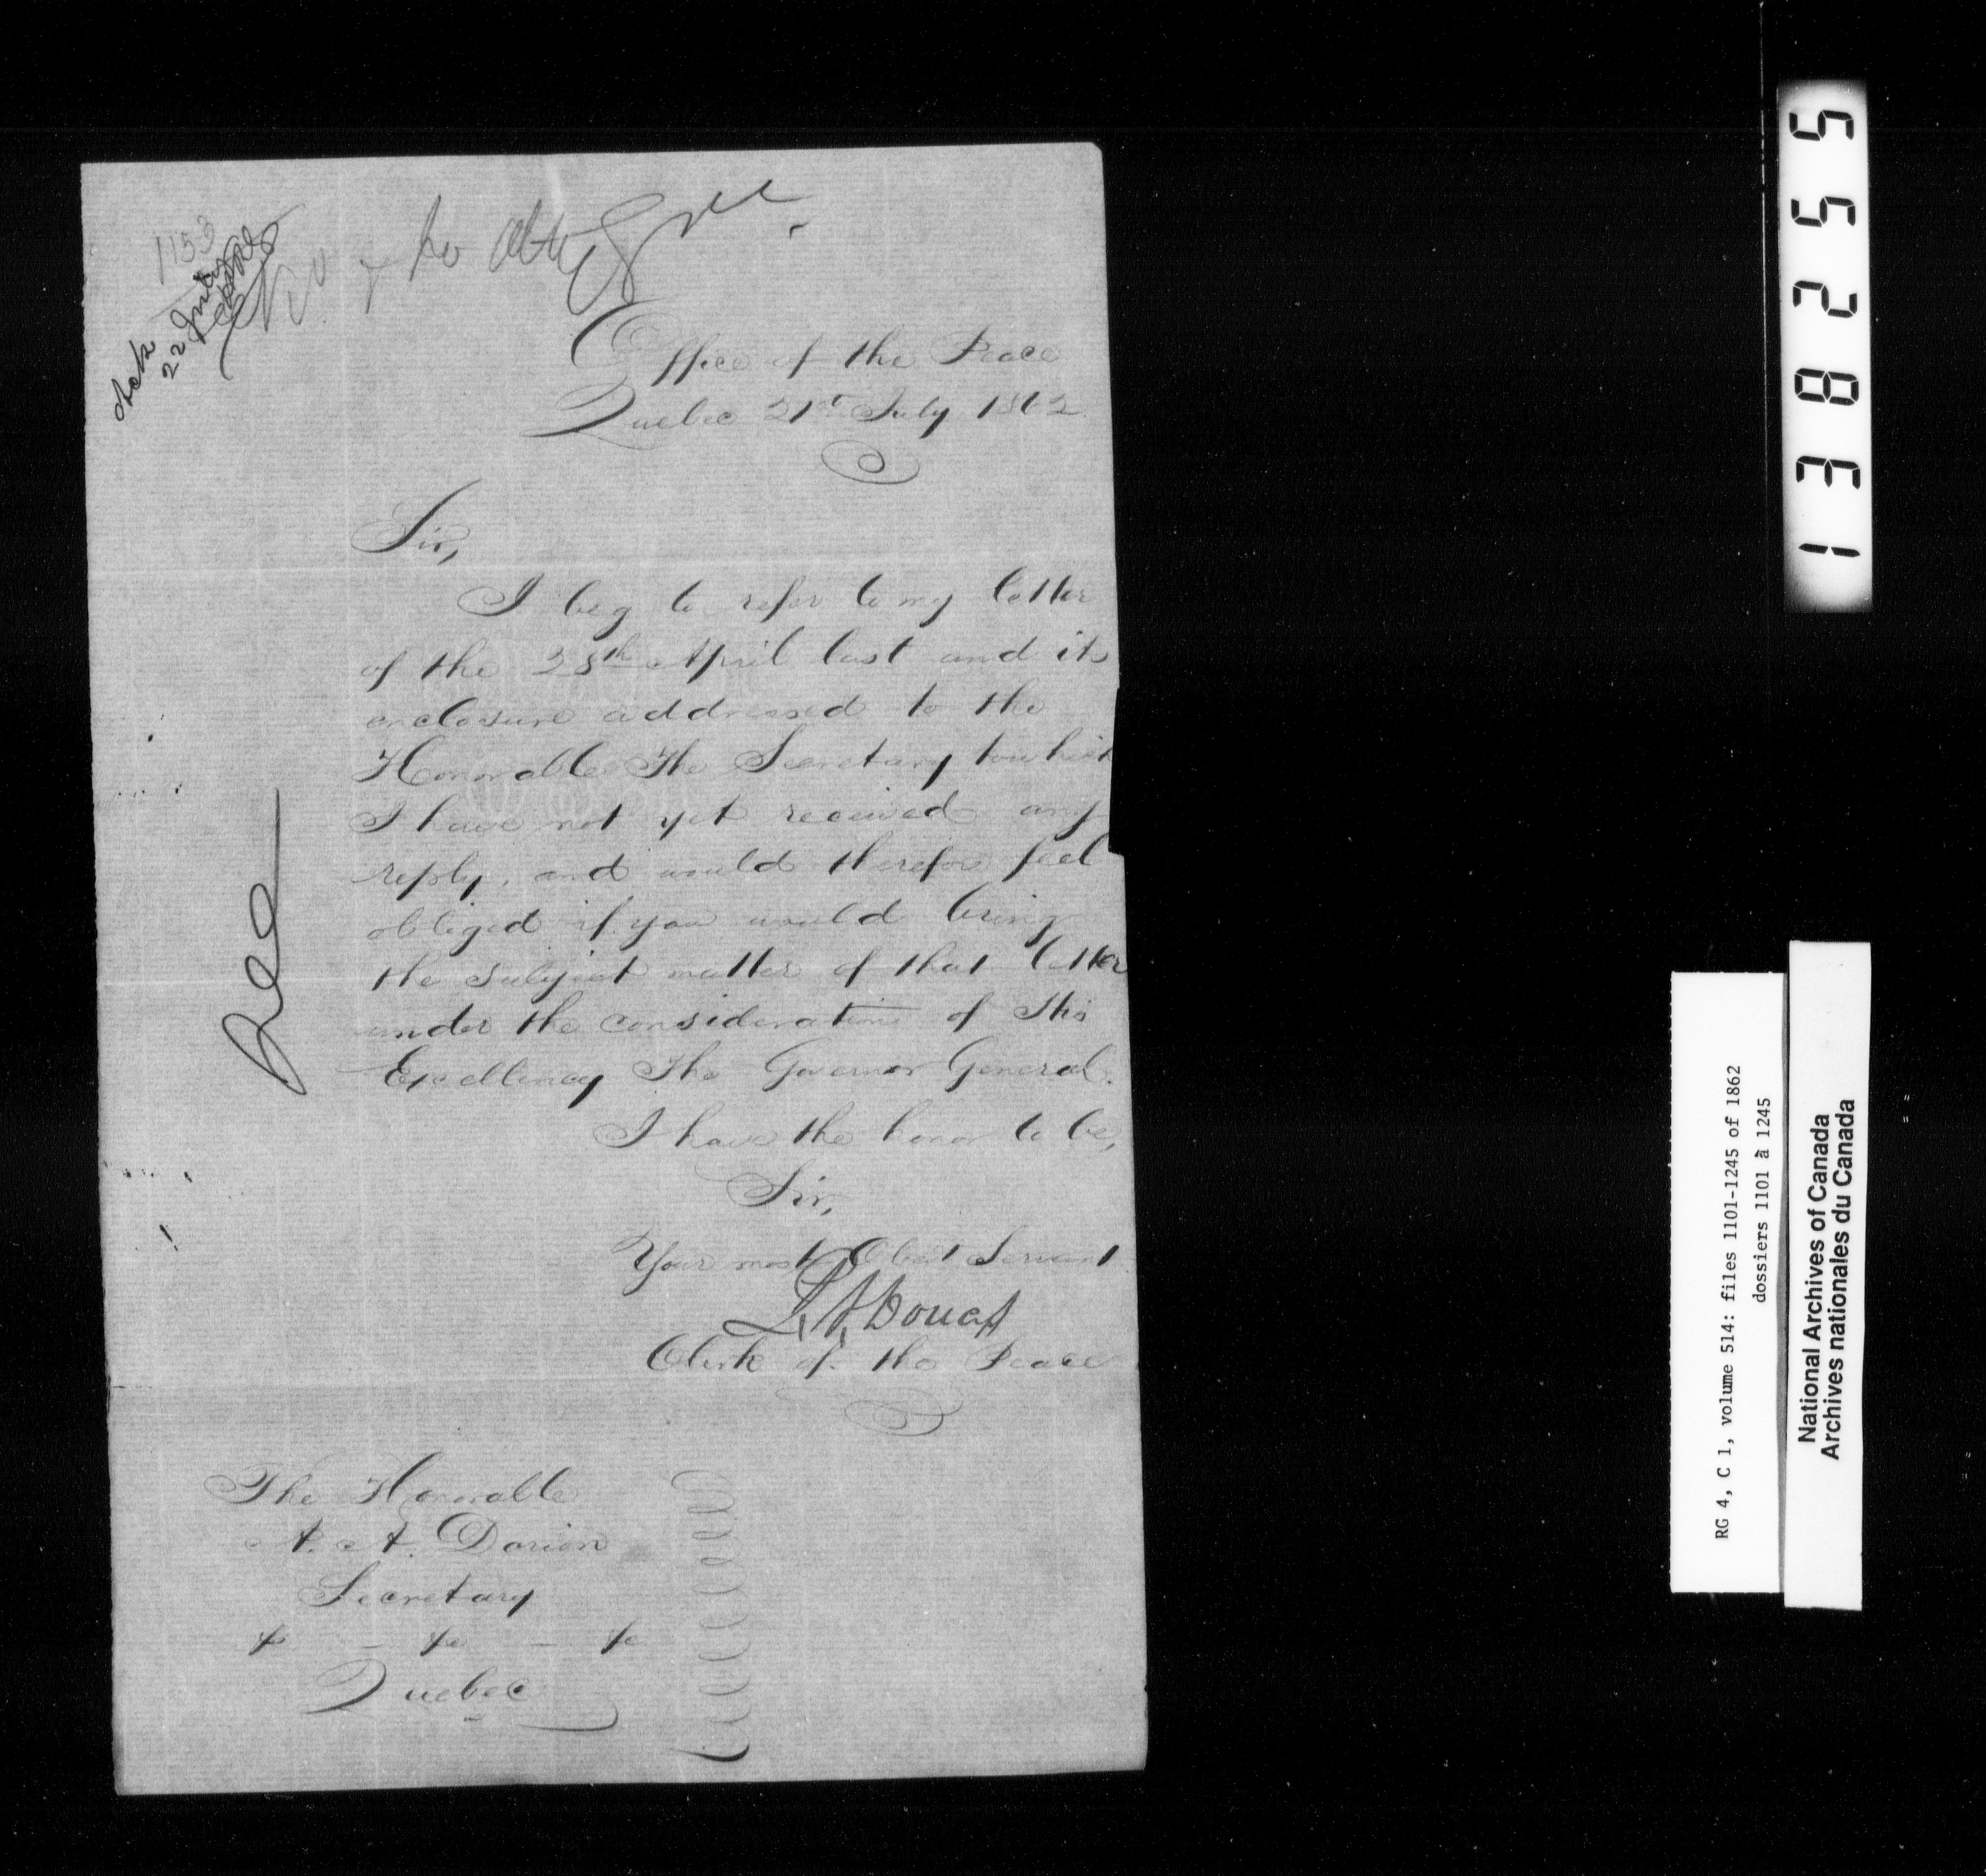 1153
Ack
22 July
Office of the Peace
Quebec 21st July 1862
Sir,
I beg to refer to my letter
of the 28th April last and its
enclosure addressed to the
Honorable The Secretary to which
I have not yet received any
reply, and would therefore feel
obliged if you would bring
the subject matter of that letter
under the consideration of His
Excellency The Governor General.
I have the honor to be,
Sir,
Your most Obedt Servant
Clerk of the Peace
The Honorable
A. A. Dorion
Secretary
&c - &c - &c
Quebec
138255
RG 4, C 1, volume 514: files 1101-1245 of 1862
dossiers 1101 à 1245
National Archives of Canada
Archives nationales du Canada